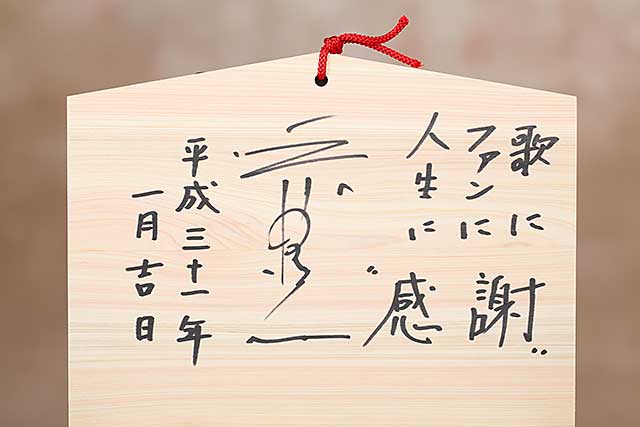 歌に
ファンに
人生に
"感謝"
平成三十一年
一月吉日